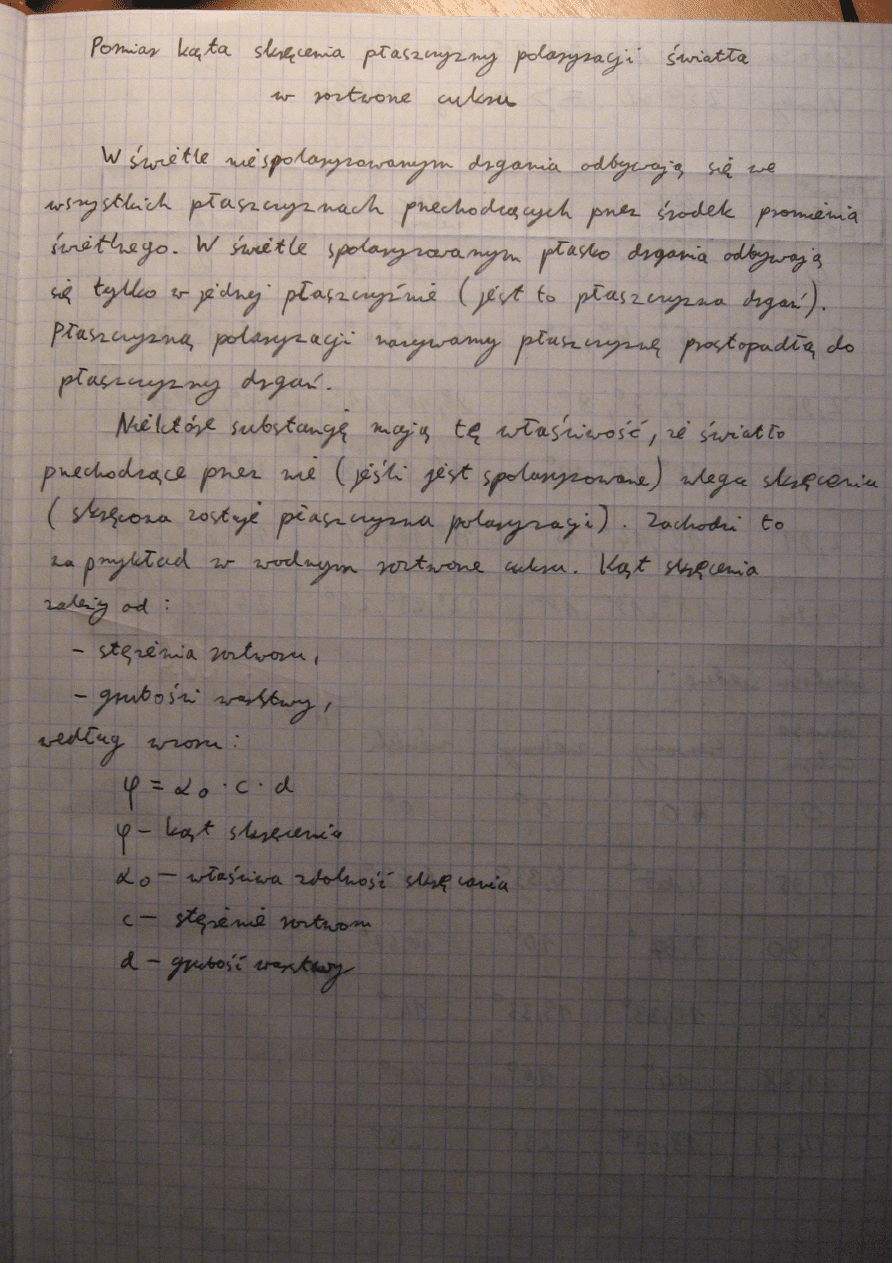 Pomiar kąta skręcenia płaszczyzny polaryzacji światła
w roztworze cukru
W świetle niespolaryzowanym drgania odbywają się we
wszystkich płaszczyznach przechodzących przez środek promienia
świetlnego. W świetle spolaryzowanym płasko drgania odbywają
się tylko w jednej płaszczyźnie (jest to płaszczyzna drgań).
Płaszczyzną polaryzacji nazywamy płaszczyznę prostopadłą do
płaszczyzny drgań.
Niektóre substancję mają tę właściwość, że światło
przechodzące przez nie (jeśli jest spolaryzowane) ulega skręceniu
(skręcona zostaje płaszczyzna polaryzacji). Zachodzi to
na przykład w wodnym roztworze cukru. Kąt skręcenia
zależy od:
- stężenia roztworu,
- grubości warstwy,
według wzoru:
φ = α₀ · c · d
φ - kąt skręcenia
α₀ - właściwa zdolność skręcania
c - stężenie roztworu
d - grubość warstwy